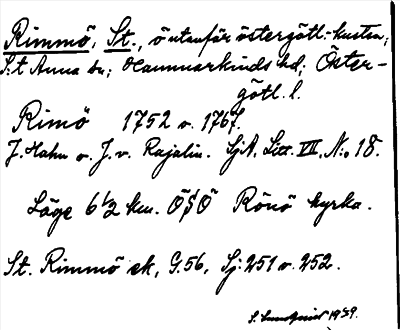 Rimmö, St., ö utanför östergötl.-kusten;
S:t Anna sn; Hammarkinds hd; Öster-
götl. l.
Rimö 1752 o. 1767.
J. Hahn o. J. v. Rajalin. SjA, Litt. VII, N:o 18.
Läge 6 1/2 km. ÖSÖ Rönö kyrka.
St. Rimmö ek, G.56, Sj: 251 o. 252.
1959.